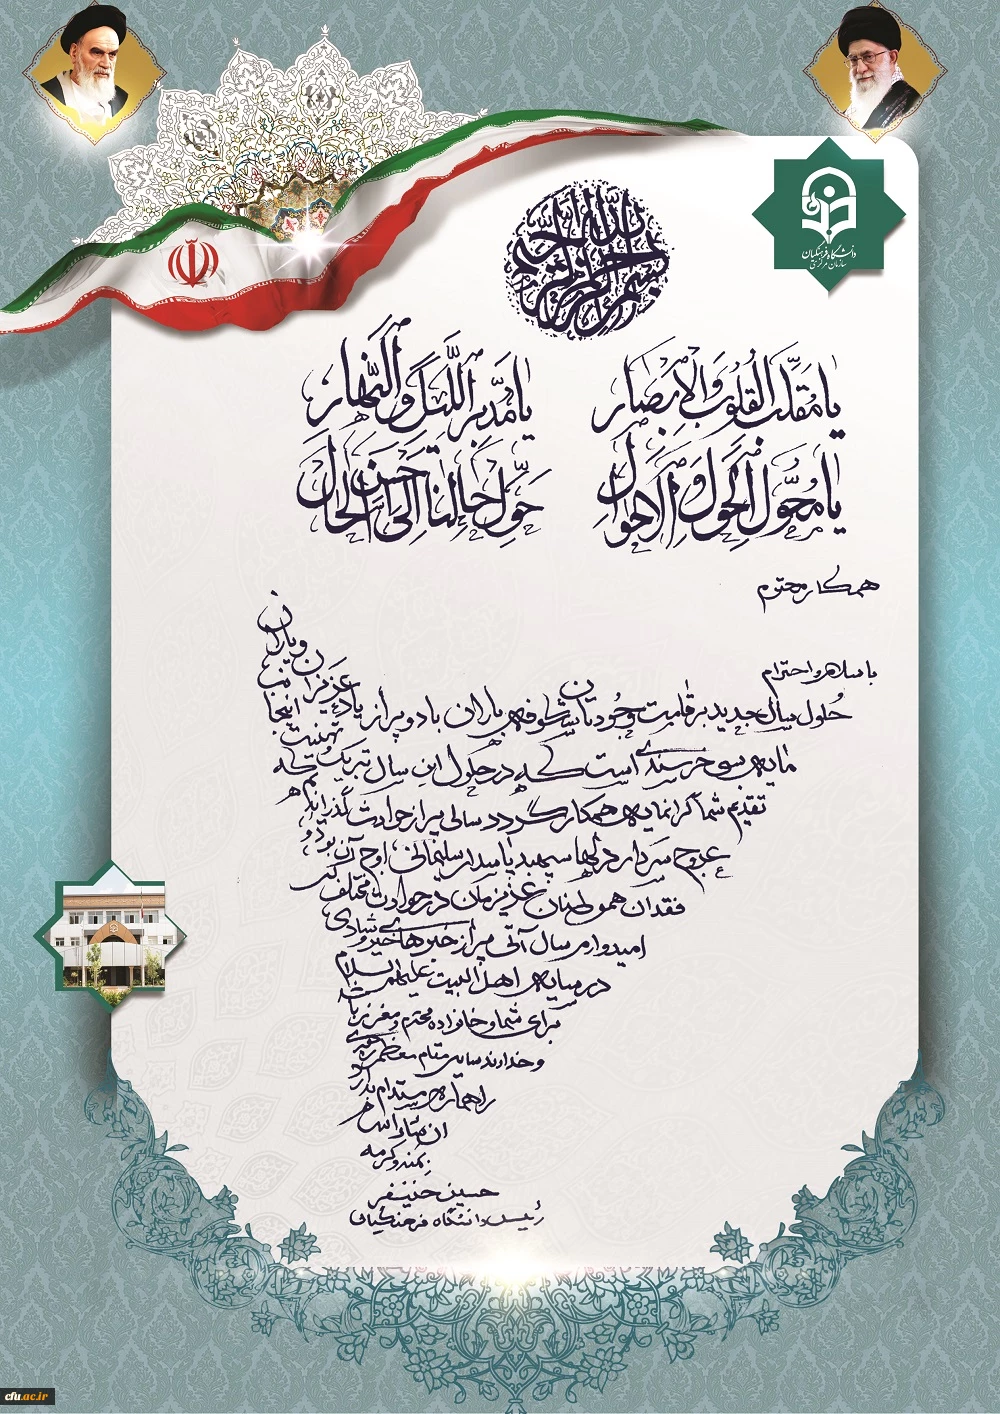 بسم الله الرحمن الرحیم
دانشگاه فرهنگیان
سازمان مرکزی
یا مقلب القلوب و الابصار یا مدبر اللیل و النهار
یا محول الحول و الاحوال حول حالنا الی احسن الحال
همکار محترم
با سلام و احترام
حلول سال جدید بر قامت وجودتان شکوفه باران باد و پر از یاد عزیزان و یاران
مایه بسی خرسندی است که در حلول این سال تبریک و تهنیت
تقدیم شما گرانمایه همکار گردد سالی پر از حوادث گذراندیم که
عروج سردار دلها سپهبد پاسدار سلیمانی اوج آن بود و
فقدان هموطنان عزیزمان در حوادث مختلف
امیدوارم سال آتی پر از خبرهای خیر و شادی
در سایه اهل البیت علیهم السلام
برای شما و خانواده محترم و معزز باشد
و خداوند سایه مقام معظم رهبری
را همواره مستدام بدارد
ان شاء الله
بمنه و کرمه
حسین خنیفر
رئیس دانشگاه فرهنگیان
cfu.ac.ir